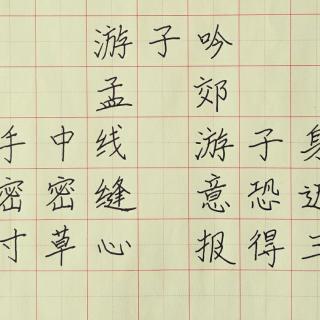 游子吟
孟 郊
手中线 游子身
密密缝 意恐迟
寸草心 报得三